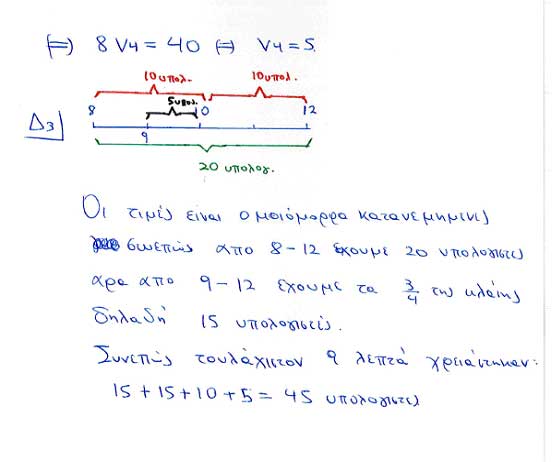 ⇔ 8 ν4 = 40 ⇔ ν4 = 5.
10 υπολ. 10 υπολ.
5 υπολ.
8 10 12
Δ3
9
20 υπολογ.
Οι τιμές είναι ομοιόμορφα κατανεμημένες
συνεπώς απο 8 – 12 έχουμε 20 υπολογιστές
αρα απο 9 – 12 έχουμε τα 3/4 της κλάσης
δηλαδή 15 υπολογιστές.
Συνεπώς τουλάχιστον 9 λεπτά χρειάστηκαν:
15 + 15 + 10 + 5 = 45 υπολογιστές